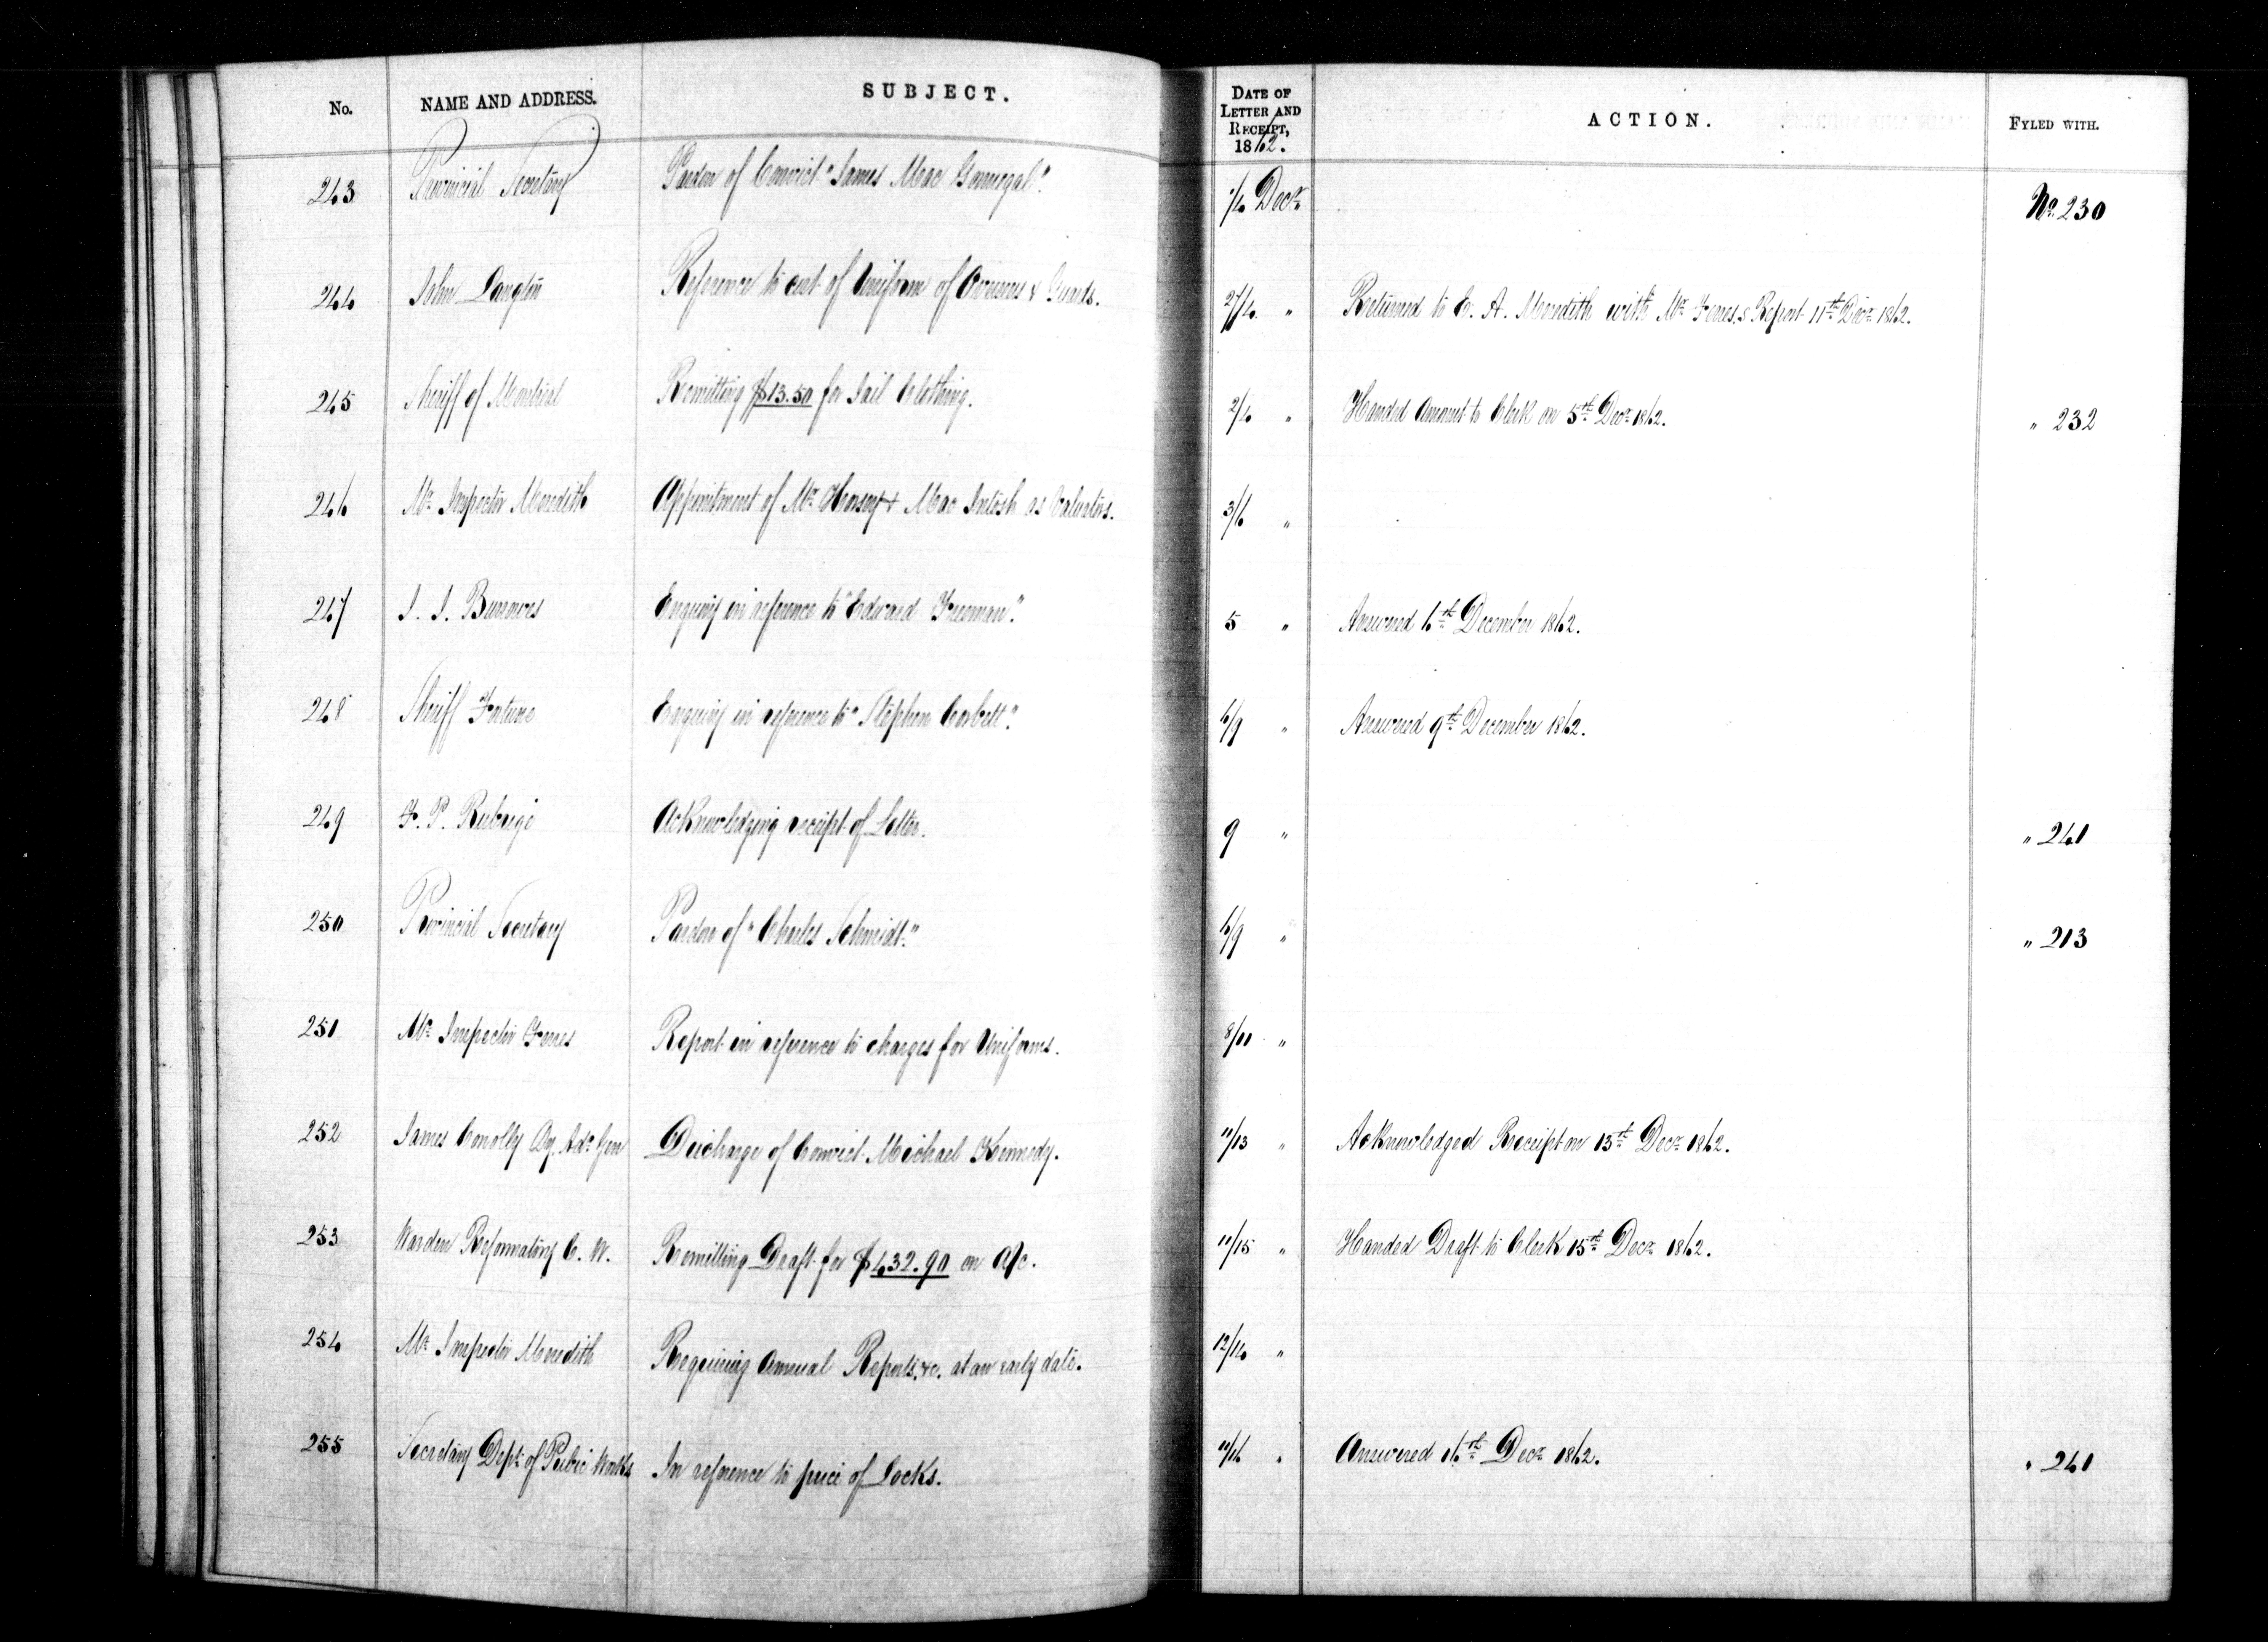 No. NAME AND ADDRESS. SUBJECT. DATE OF LETTER AND RECEIPT, 1862. ACTION. FYLED WITH.
243 Provincial Secretary Pardon of Convict "James Mac Gonnegal". 1/4 Decr. No. 230
244 John Langton Reference to cut of Uniform of Overseers & Guards. 2/4 " Returned to E. A. Meredith with Mr. Ferres's Report 11th Decr. 1862.
245 Sheriff of Montreal Remitting $13.50 for Jail Clothing. 2/4 " Handed Amount to Clerk on 5th Decr. 1862. " 232
246 Mr. Inspector Meredith Appointment of Mr. Horsey & Mac Intosh as Valuators. 3/6 "
247 J. J. Burrowes Enquiry in reference to "Edward Freeman". 5 " Answered 6th December 1862.
248 Sheriff Fortune Enquiry in reference to "Stephen Corbett". 6/9 " Answered 9th December 1862.
249 F. P. Rubidge Acknowledging receipt of Letter. 9 " " 241
250 Provincial Secretary Pardon of "Charles Schmidt." 6/9 " " 213
251 Mr. Inspector Ferres Report in reference to charges for Uniforms. 8/11 "
252 James Conolly Ag. Adt. Gen Discharge of Convict Michael Kennedy. 11/13 " Acknowledged Receipt on 13th Decr. 1862.
253 Warden Reformatory C. W. Remitting Draft for $432.90 on A/c. 11/15 " Handed Draft to Clerk 15th Decr. 1862.
254 Mr. Inspector Meredith Requiring Annual Reports, &c. at an early date. 12/14 "
255 Secretary Dept. of Public Works In reference to price of Locks. 11/16 " Answered 16th Decr. 1862. " 241